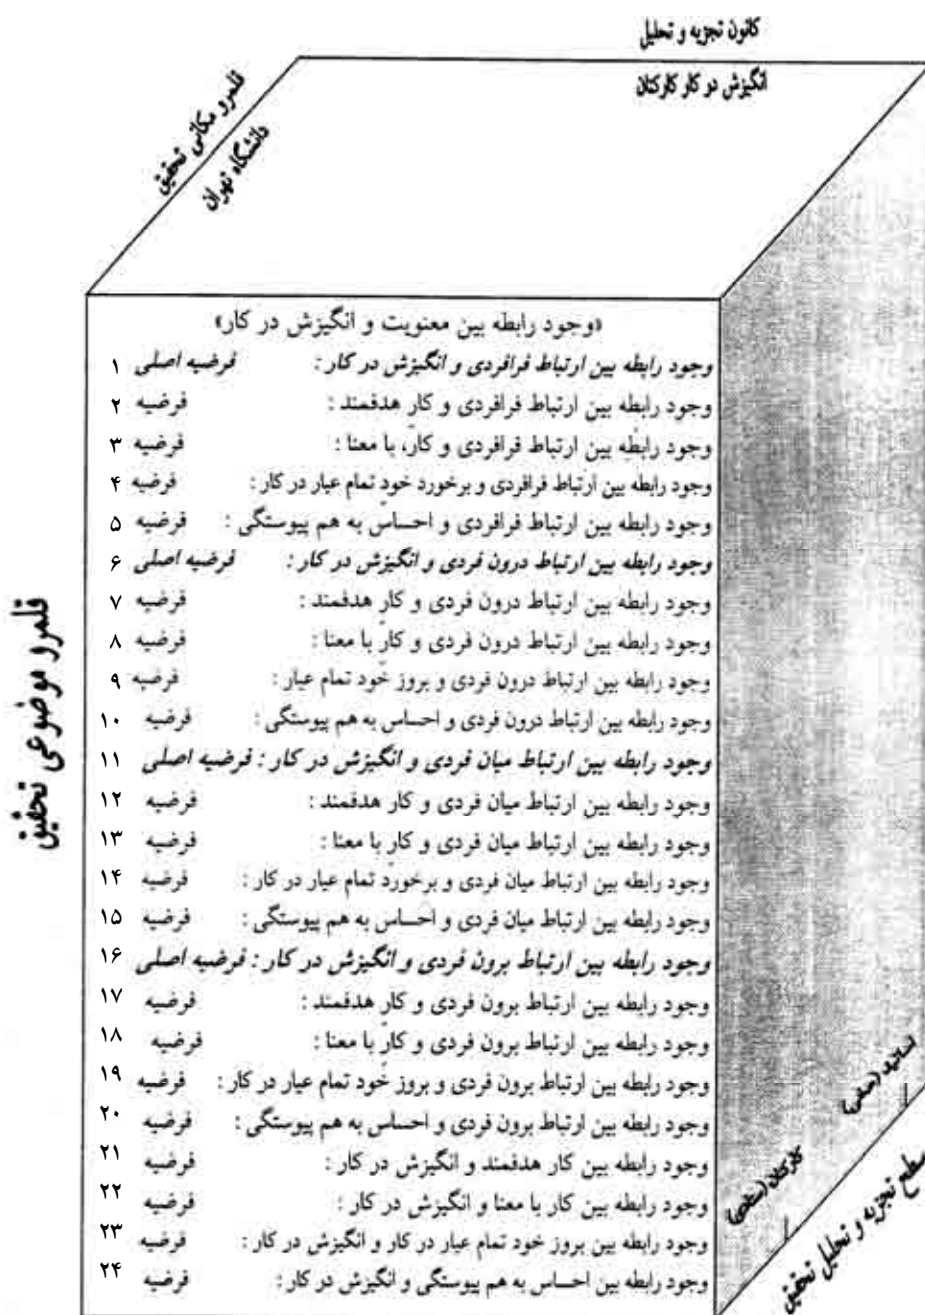 کانون تجزیه و تحلیل
انگیزش در کار کارکنان
قلمرو مکانی تحقیق
دانشگاه تهران
«وجود رابطه بین معنویت و انگیزش در کار»
وجود رابطه بین ارتباط فرافردی و انگیزش در کار : فرضیه اصلی ۱
وجود رابطه بین ارتباط فرافردی و کار هدفمند : فرضیه ۲
وجود رابطه بین ارتباط فرافردی و کار، با معنا : فرضیه ۳
وجود رابطه بین ارتباط فرافردی و برخورد خود تمام عیار در کار : فرضیه ۴
وجود رابطه بین ارتباط فرافردی و احساس به هم پیوستگی : فرضیه ۵
وجود رابطه بین ارتباط درون فردی و انگیزش در کار : فرضیه اصلی ۶
وجود رابطه بین ارتباط درون فردی و کار هدفمند : فرضیه ۷
وجود رابطه بین ارتباط درون فردی و کار با معنا : فرضیه ۸
وجود رابطه بین ارتباط درون فردی و بروز خود تمام عیار : فرضیه ۹
وجود رابطه بین ارتباط درون فردی و احساس به هم پیوستگی : فرضیه ۱۰
وجود رابطه بین ارتباط میان فردی و انگیزش در کار : فرضیه اصلی ۱۱
وجود رابطه بین ارتباط میان فردی و کار هدفمند : فرضیه ۱۲
وجود رابطه بین ارتباط میان فردی و کار با معنا : فرضیه ۱۳
وجود رابطه بین ارتباط میان فردی و برخورد تمام عیار در کار : فرضیه ۱۴
وجود رابطه بین ارتباط میان فردی و احساس به هم پیوستگی : فرضیه ۱۵
وجود رابطه بین ارتباط برون فردی و انگیزش در کار : فرضیه اصلی ۱۶
وجود رابطه بین ارتباط برون فردی و کار هدفمند : فرضیه ۱۷
وجود رابطه بین ارتباط برون فردی و کار با معنا : فرضیه ۱۸
وجود رابطه بین ارتباط برون فردی و بروز خود تمام عیار در کار : فرضیه ۱۹
وجود رابطه بین ارتباط برون فردی و احساس به هم پیوستگی : فرضیه ۲۰
وجود رابطه بین کار هدفمند و انگیزش در کار : فرضیه ۲۱
وجود رابطه بین کار با معنا و انگیزش در کار : فرضیه ۲۲
وجود رابطه بین بروز خود تمام عیار در کار و انگیزش در کار : فرضیه ۲۳
وجود رابطه بین احساس به هم پیوستگی و انگیزش در کار : فرضیه ۲۴
قلمرو موضوعی تحقیق
کارکنان (ستادی)
سطح تجزیه و تحلیل تحقیق